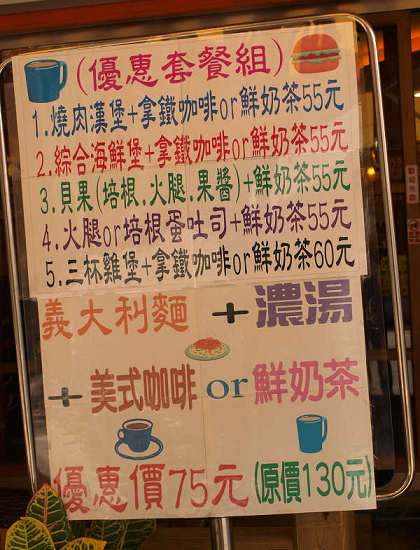 (優惠套餐組)
1.燒肉漢堡+拿鐵咖啡or鮮奶茶55元
2.綜合海鮮堡+拿鐵咖啡or鮮奶茶55元
3.貝果(培根.火腿.果醬)+鮮奶茶55元
4.火腿or培根蛋吐司+鮮奶茶55元
5.三杯雞堡+拿鐵咖啡or鮮奶茶60元
義大利麵+濃湯
+美式咖啡or鮮奶茶
優惠價75元(原價130元)